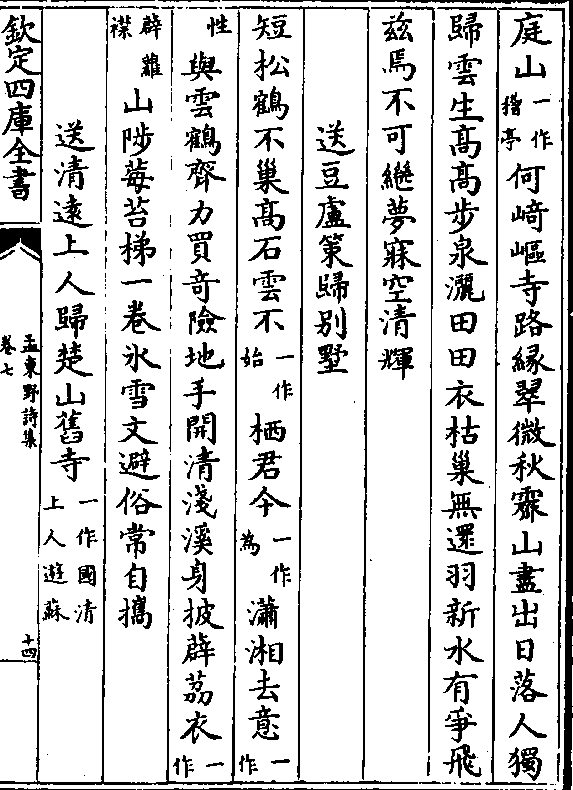 庭山一作亭何﨑嶇寺路緣翠微秋霽山盡出日落人獨
歸雲生高高步泉灑田田衣枯巢無還羽新水有爭飛
茲焉不可繼夢寐空清輝
送豆盧策歸别墅
短松鶴不巢高石雲不一作始栖君今一作為瀟湘去意一作
性與雲鶴齊力買奇險地手開清淺溪身披薜荔衣一作
辟蘿襟山陟莓苔梯一卷氷雪文避俗常自攜
送清遠上人歸楚山舊寺一作國清上人遊蘇
欽定四庫全書
孟東野詩集
卷七
十四